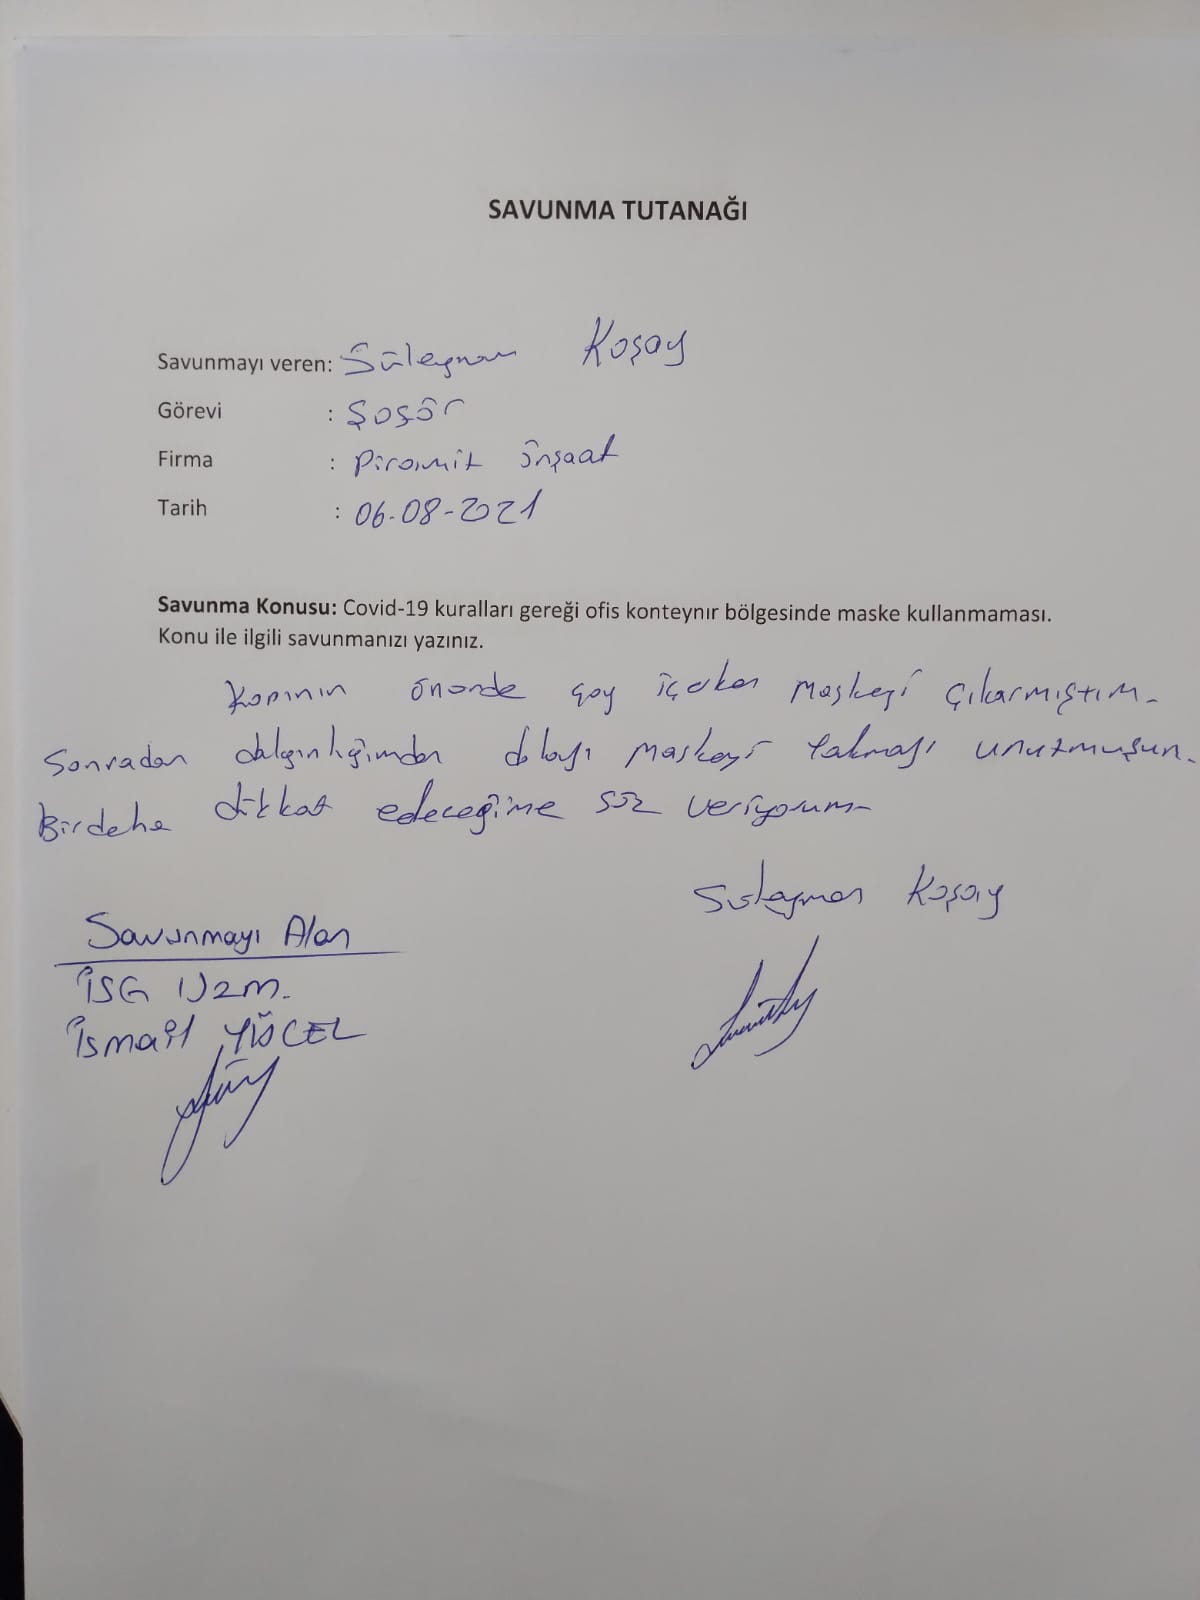 SAVUNMA TUTANAĞI
Savunmayı veren: Süleyman Koşay
Görevi : Şoför
Firma : Piramit inşaat
Tarih : 06-08-2021
Savunma Konusu: Covid-19 kuralları gereği ofis konteynır bölgesinde maske kullanmaması.
Konu ile ilgili savunmanızı yazınız.
Kapının önünde çay içerken maskeyi çıkarmıştım.
Sonradan dalgınlığımdan dolayı maskeyi takmayı unutmuşum.
Birdaha dikkat edeceğime söz veriyorum
Süleyman Koşay
Savunmayı Alan
İSG Uzm.
İsmail YÜCEL